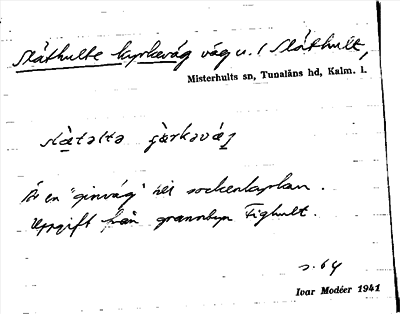 Slåthulte kyrkeväg väg u. i Slåthult,
Misterhults sn, Tunaläns hd, Kalm. l.
Är en "ginväg" till sockenkyrkan.
Uppgift från grannbyn Fighult.
s. 64
Ivar Modéer 1941